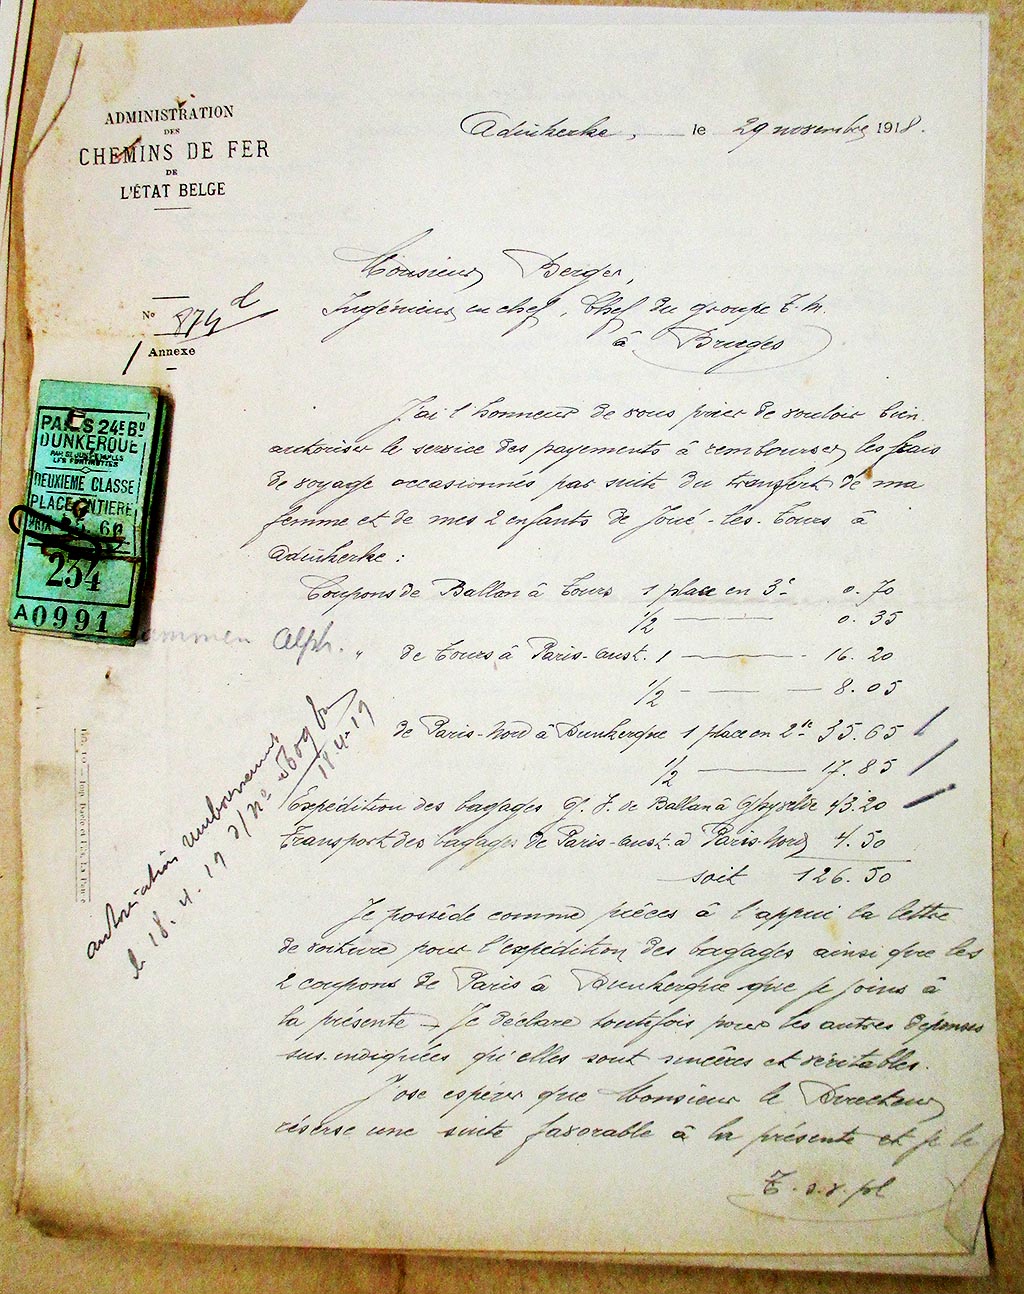 ADMINISTRATION
DES
CHEMINS DE FER
DE
L'ÉTAT BELGE
Adinkerke, le 29 novembre 1918.
Monsieur Berger,
Ingénieur en chef, Chef du groupe T. M.
à Bruges
No 874 d
1 Annexe
PARIS 24E BU
DUNKERQUE
DEUXIEME CLASSE
PLACE ENTIERE
PRIX
234
A0991
J'ai l'honneur de vous prier de vouloir bien
autoriser le service des payements à rembourser les frais
de voyage occasionnés par suite du transfert de ma
femme et de mes 2 enfants de Joué-les-Tours à
Adinkerke :
Coupons de Ballan à Tours 1 place en 3e 0.70
1/2 — 0.35
Alph.
" de Tours à Paris-Aust. 1 — 16.20
1/2 — — 8.05
de Paris-Nord à Dunkerque 1 place en 2e 35.65
1/2 — 17.85
Expédition des bagages G. V. de Ballan à 43.20
Transport des bagages de Paris-Aust. à Paris-Nord 4.50
soit 126.50
autorisation remboursement
le 18.4.19 d/ No
18.4.19
Je possède comme pièces à l'appui la lettre
de voiture pour l'expédition des bagages ainsi que les
2 coupons de Paris à Dunkerque que je joins à
la présente — Je déclare toutefois pour les autres dépenses
sus-indiquées qu'elles sont sincères et véritables.
J'ose espérer que Monsieur le Directeur
réserve une suite favorable à la présente et je le
T. s. v. pl